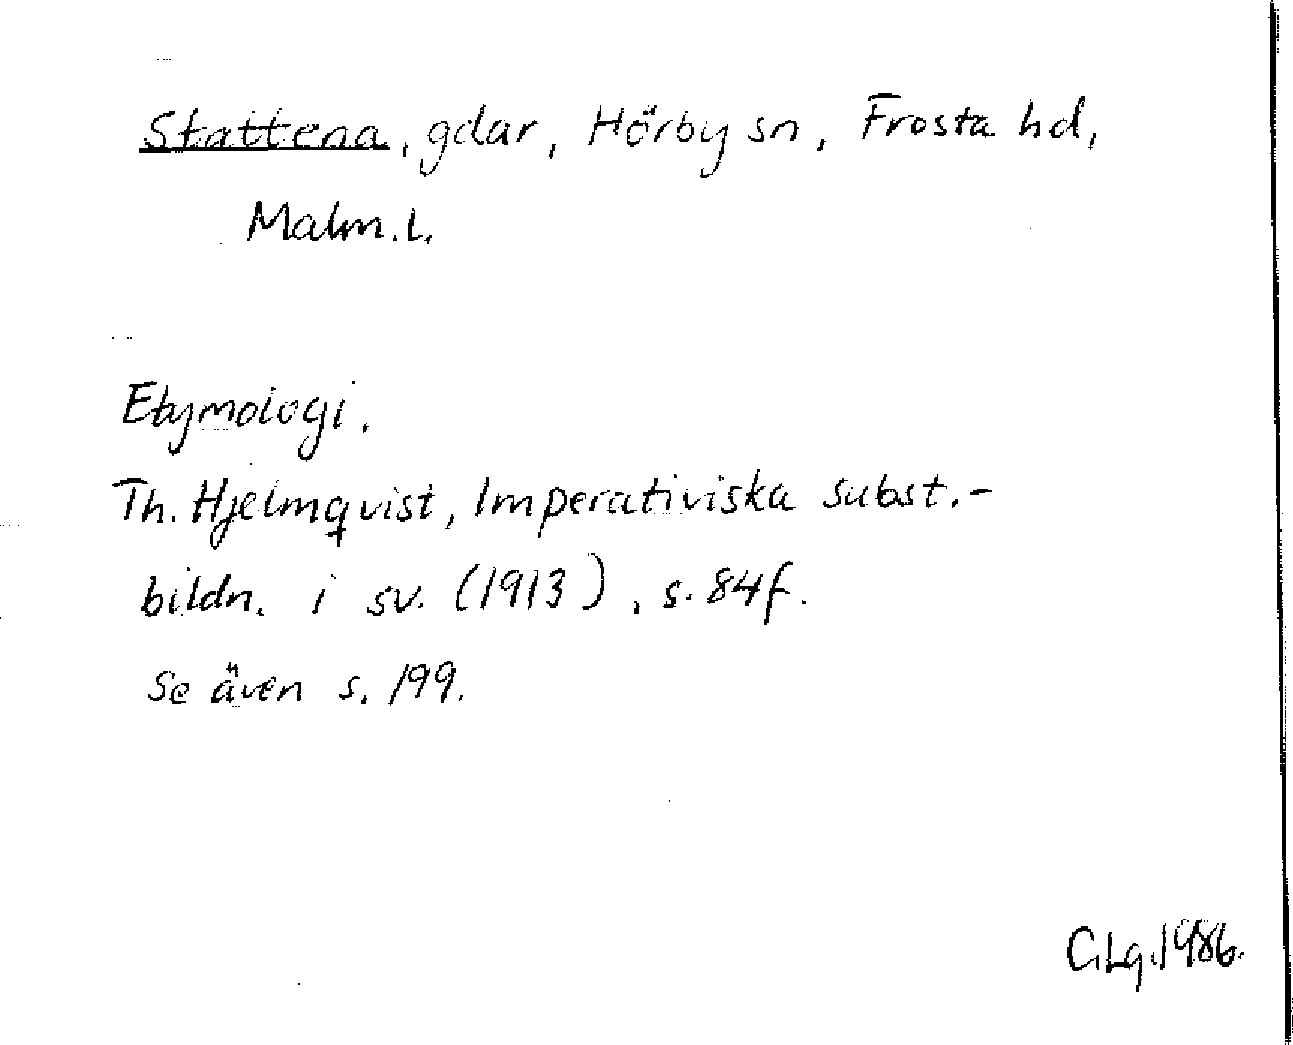 Stattena, gdar, Hörby sn, Frosta hd,
Malm.l.
Etymologi.
Th. Hjelmqvist, Imperativiska subst.-
bildn. i sv. (1913), s. 84f.
Se även s. 199.
C.Lg.1986.